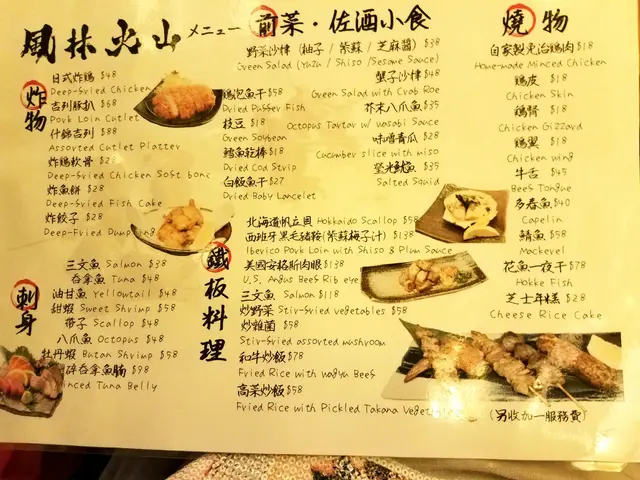 風林火山 メニュー
炸物
日式炸鶏 $48
Deep-fried Chicken
吉列豚扒 $68
Pork Loin Cutlet
什錦吉列 $88
Assorted Cutlet Platter
炸鶏軟骨 $28
Deep-fried Chicken Soft bone
炸魚餅 $28
Deep-fried Fish Cake
炸餃子 $28
Deep-Fried Dumpling
刺身
三文魚 Salmon $38
吞拿魚 Tuna $48
油甘魚 Yellowtail $48
甜蝦 Sweet Shrimp $58
帶子 Scallop $48
八爪魚 Octopus $48
牡丹蝦 Butan Shrimp $58
碎吞拿魚腩 $98
Minced Tuna Belly
前菜・佐酒小食
野菜沙律 (柚子/紫蘇/芝麻醬) $38
Green Salad (Yuzu / Shiso / Sesame Sauce)
蟹子沙律 $48
Green Salad with Crab Roe
鶏泡魚干 $58
Dried Puffer Fish
芥末八爪魚 $35
Octopus Tartar w/ wasabi Sauce
枝豆 $18
Green Soybean
味噌青瓜 $28
Cucumber slice with miso
鱈魚乾棒 $18
Dried Cod Strip
墨魚 $35
Salted Squid
白飯魚干 $27
Dried Baby Lancelet
鐵板料理
北海道帆立貝 Hokkaido Scallop $58
西班牙黑毛豬鞍(紫蘇梅子汁) $138
Iberico Pork Loin with Shiso & Plum Sauce
美國安格斯肉眼 $138
U.S. Angus Beef Rib eye
三文魚 Salmon $118
炒野菜 Stir-fried vegetables $58
炒雜菌 $58
Stir-fried assorted mushroom
和牛炒飯 $78
Fried Rice with wagyu Beef
高菜炒飯 $58
Fried Rice with Pickled Takana Vegetable
燒物
自家製免治鶏肉 $18
Home-made Minced Chicken
鶏皮 $18
Chicken Skin
鶏腎 $18
Chicken Gizzard
鶏翼 $18
Chicken wing
牛舌 $45
Beef Tongue
多春魚 $40
Capelin
鯖魚 $58
Mackerel
花魚一夜干 $78
Hokke Fish
芝士年糕 $28
Cheese Rice Cake
(另收加一服務費)